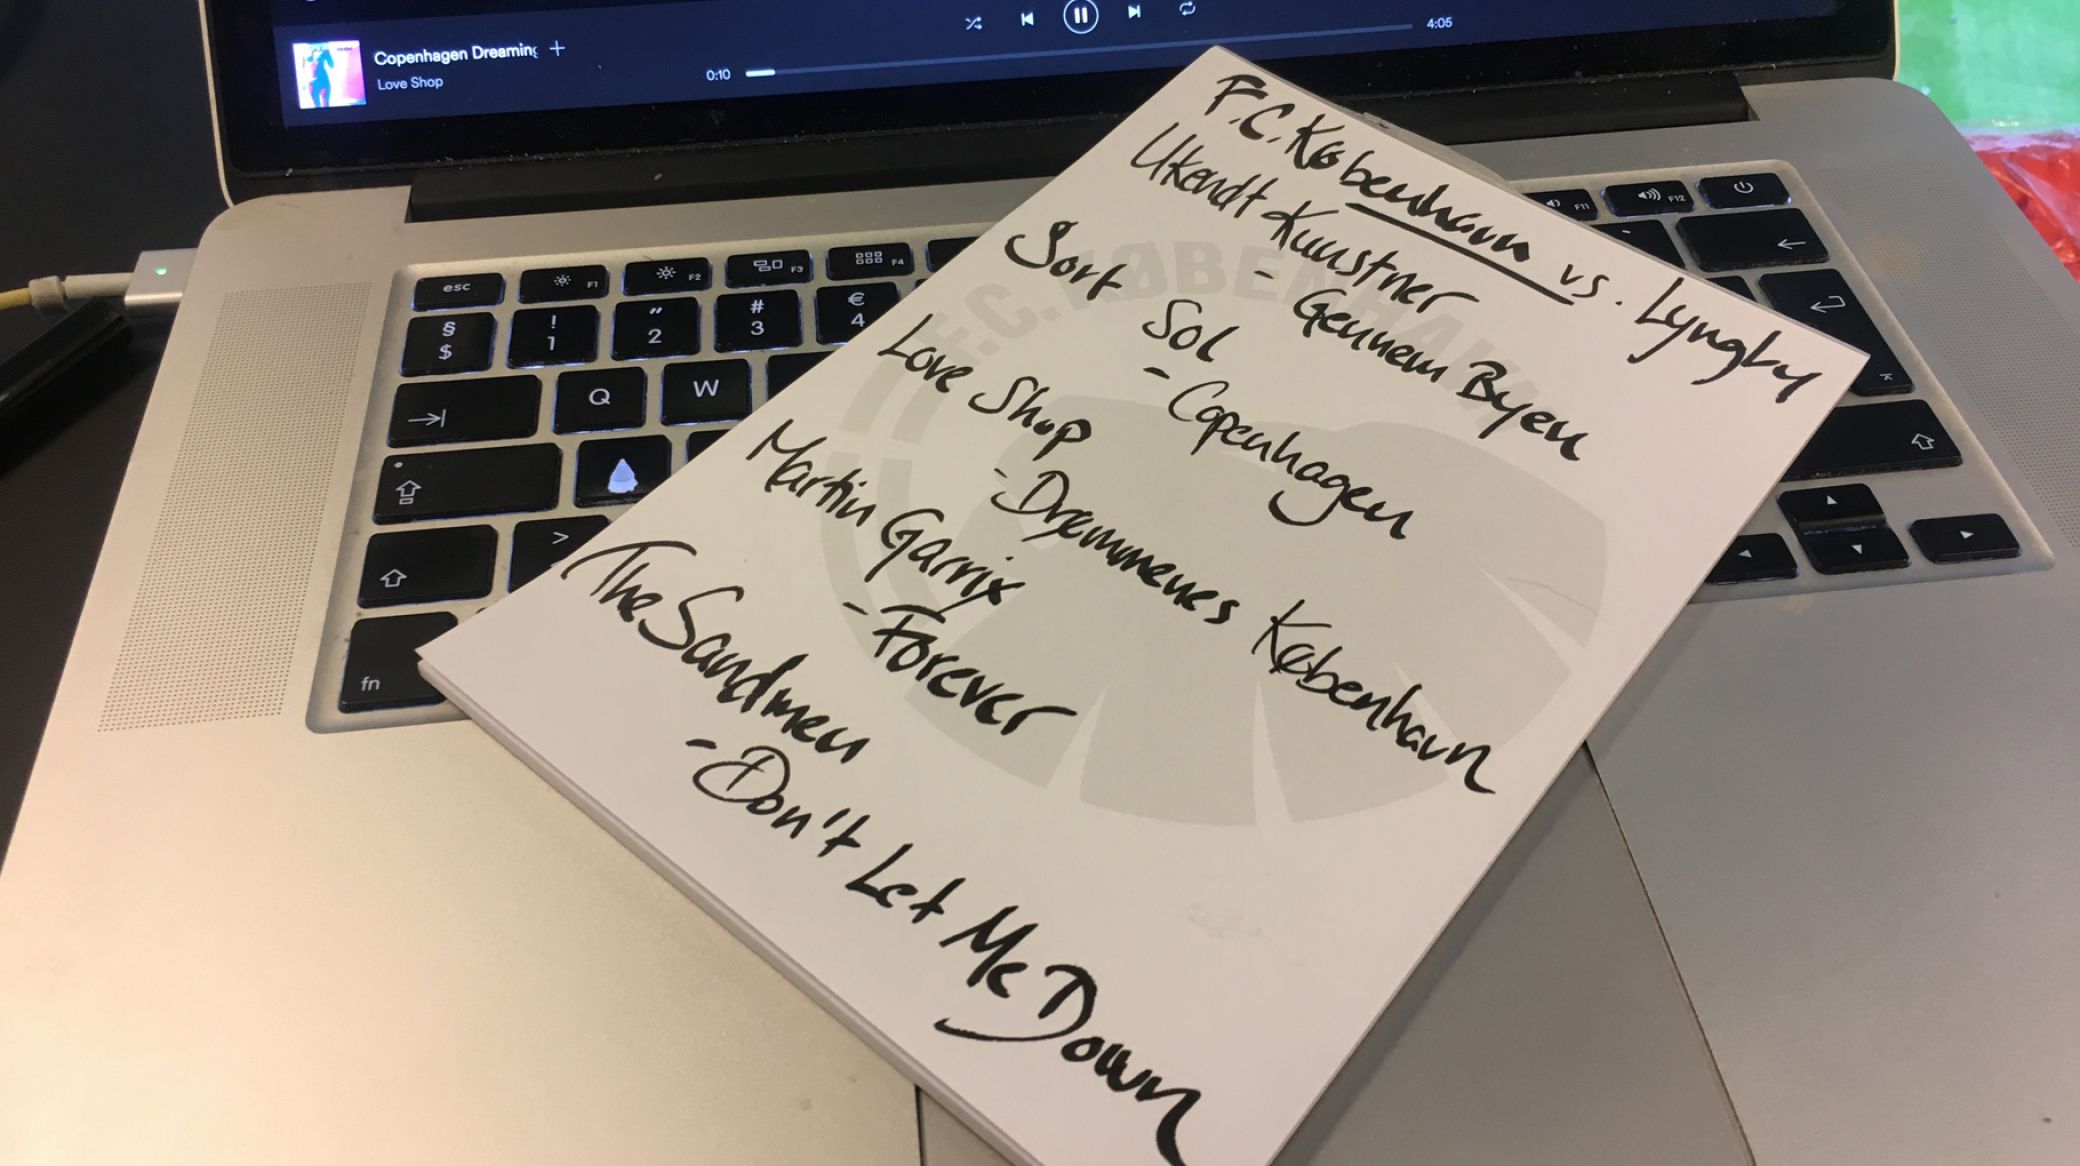 Copenhagen Dreaming
Love Shop
0:10
4:05
F.C. København vs. Lyngby
Ukendt Kunstner
- Gennem Byen
Sort Sol
- Copenhagen
Love Shop
- Drømmenes København
Martin Garrix
- Forever
The Sandmen
- Don't Let Me Down
F.C. KØBENHAVN
esc
F1
F2
F3
F4
F11
F12
§
$
!
1
"
2
#
3
€
4
Q
W
>
fn